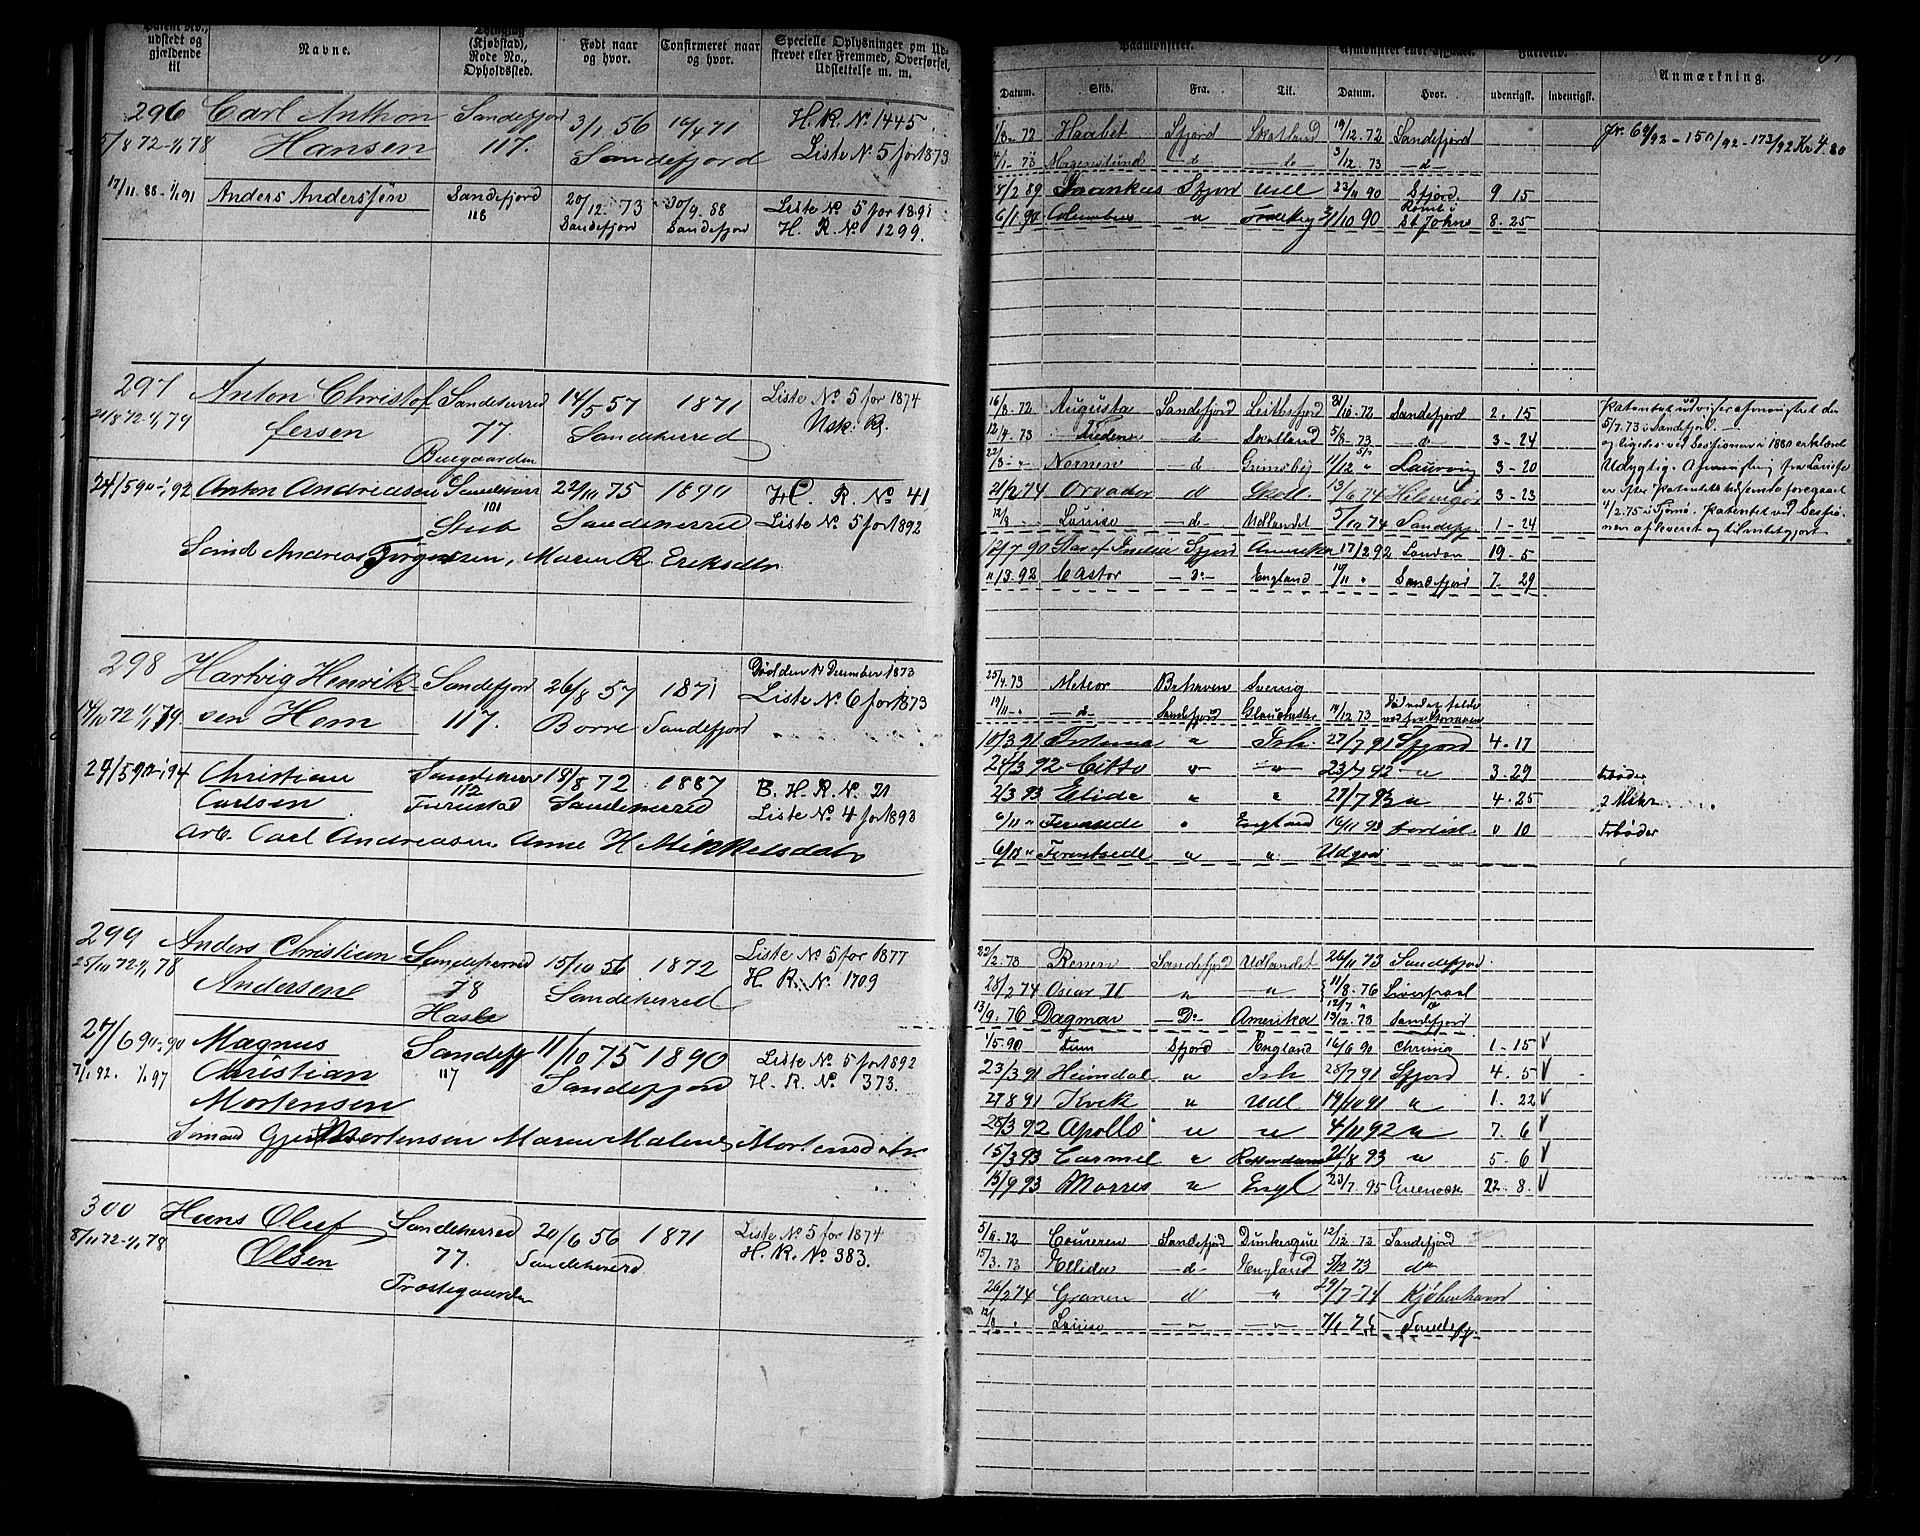 udstedt og
gjældende
til
Navne.
(Kjøbstad),
Rode No.,
Opholdssted.
Født naar
og hvor.
Confirmeret naar
og hvor.
Specielle Oplysninger om Ud-
skrevet eller Fremmed, Overførsel,
Udslettelse m. m.
296 Carl Anthon Sandefjord 3/1 56 10/4 71 H. R. No 1445.
5/8 72-1/1 78 Hansen 117. Sandefjord Liste No 5 for 1873
17/11 88-1/1 91 Anders Anderssøn Sandefjord 20/12 73 30/9 88 Liste No 5 for 1891
118 Sandefjord Sandefjord H. R. No 1299.
297 Anton Christof Sandeherred 14/5 57 1871 Liste No 5 for 1874
21/8 72-1/1 79 fersen 77. Sandeherred Usk. R.
Buegaarden
24/5 90-1/1 92 Anton Andreasen 22/10 75 1890 H. R. No 41
101 Stub Sandeherred Liste No 5 for 1892
Sømd Andreas Jørgensen, Maren R. Eriksdtr.
298 Hartvig Henrik- Sandefjord 26/8 57 1871 Død den 14 December 1873
Liste No 6 for 1873
14/10 72 1/1 79 sen Hem 117. Borre Sandefjord
24/5 90-1/1 94 Christian 18/8 72 1887 B. H. R. No 21
Carlsen 112 Furustad Sandeherred Liste No 4 for 1893
Arb. Carl Andreasen Anne H. Mikkelsdatr
299 Anders Christian Sandeherred 15/10 56 1872 Liste No 5 for 1877
25/10 72-1/1 78 Andersen 78 Sandeherred H. R. No 1709
Hasle
27/6 90-90 Magnus Sandefj 11/10 75 1890 Liste No 5 for 1892
7/1 92. 1/1 97 Christian 117 Sandefjord H. R. No 373.
Mortensen
Sømand Mortensen Maren Malene Mortensdatr
300 Hans Oluf Sandeherred 20/6 56 1871 Liste No 5 for 1874
8/11 72-1/1 78 Olsen 77. Sandeherred H. R. No 383.
Præstegaarden
Paamønstret.
Anmærkning.
Datum. Skib. Fra. Til. Datum. Hvor. udenrigsk. indenrigsk.
1/8-72 Haabet Sfjord Skotland 19/12.72 Sandefjord Jr. 64/92-150/92-173/92 Kr 4.80
4/1-73 Morgenstund -d- -do- 3/12.73 -d-
8/2 89 Sfjord Udl 23/11 90 Sfjord 9 15
6/1 90 Columbus " 31/10 90 St Johns 8-25
16/8.72 Augusta Sandefjord Leithsfjord 31/10.72 Sandefjord 2.15
12/4.73 d Skotland 5/8-73 -d- 3-24
22/8-" Nornen -d Grimsby 11/12 " Laurvig 3-20
21/2 74 d Skotl. 13/6 74 Helsingør 3-23
12/8 Louise -d- Udlandet 5/10 74 Sandefj. 1-24
12/7 90 Sfjord Amerika 17/2 92 London 19-5
11/3.92 Castor -do- England 10/11 " Sandefjord 7-29
5/7.73 i Sandefjord. -
1/2.75 i Tjømø. Patentet ved Sessio-
nen afkrevet og tilintetgjort
25/4.73 Meteor Sverrig
19/11-" -d- Sandefjord Glaucester 14/12 73
10/3 91 Fortuna " Ish. 27/7 91 Sfjord 4.17
24/3 92 Citto " " 23/7 92 " 3-29
2/3 93 Elida " " 27/7 93 " 4-25
6/11 " " England 16/11 93 0 10
6/11 " " " Udgaar
22/2.73 Sandefjord Udlandet 26/11 73 Sandefjord.
28/2 74 Oscar II " " 11/8-76 Liverpool
13/9.76 Dagmar -Do- Amerika 13/12.78 Sandefjord
1/5-90 Sfjord England 16/6 90 Chrania 1-15 V
23/3 91 Heimdal " Ish 28/7 91 Sfjord 4.5 V
27 8 91 Kvik " Udl 19/10 91 " 1.22 V
25/3 92 Apollo " " 4/11 92 " 7.6 V
15/3 93 Carmel " Rotterdam 21/8 93 " 5-6 V
15/9 93 Morres " Engl 23/7 95 Greenock 22-8. V
5/6.72 Coureren Sandefjord Dunkerque 12/12.72 Sandefjord
15/3.73 Ellida -d- England 5/12 73 do
26/2 74 Granen d " 29/7-74 Kjøbenhavn
12/8 " Louise -"- -"- Sandefj.